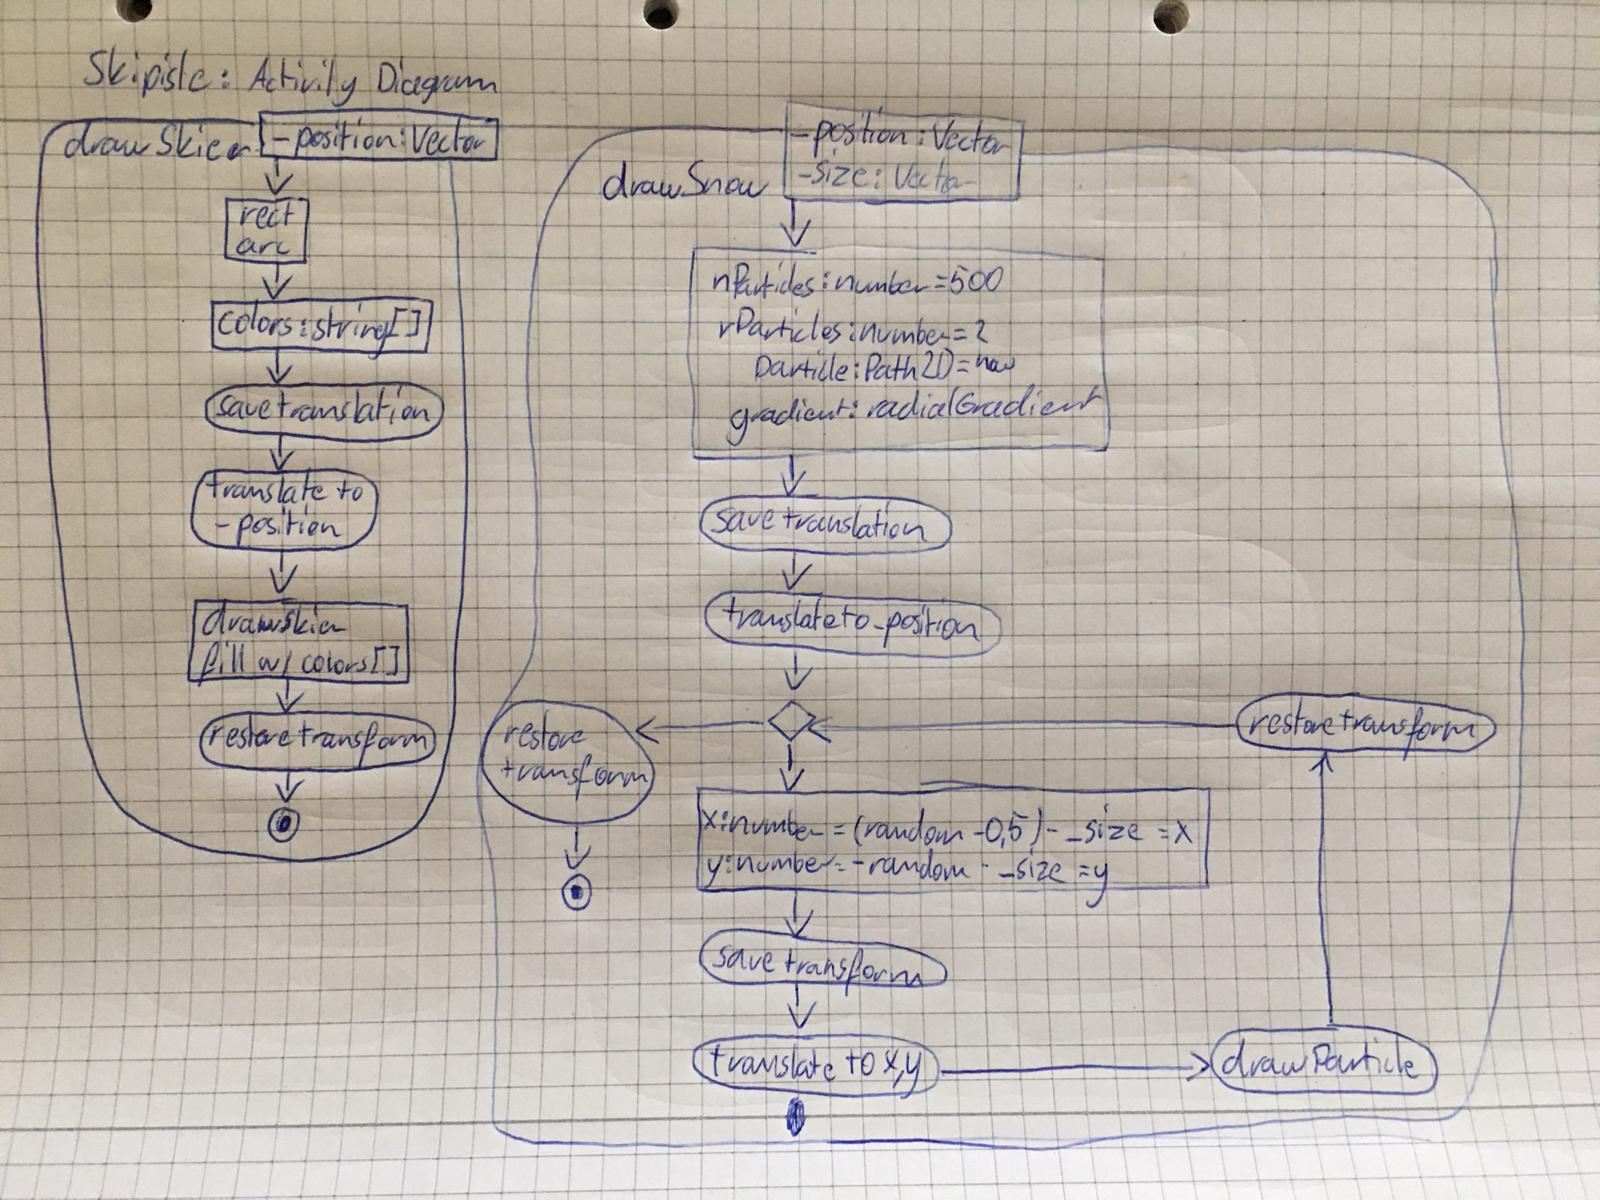 Skipiste: Activity Diagram
drawSkier
-position:Vector
rect
arc
colors:string[]
save translation
translate to
-position
drawskier
fill w/ colors[]
restore transform
drawSnow
-position:Vector
-size:Vector
nParticles:number=500
rParticles:number=2
particle:Path2D=new
gradient: radialGradient
save translation
translate to _position
restore
transform
restore transform
x:number=(random-0,5)·_size=x
y:number=-random·_size=y
save transform
translate to x,y
drawParticle